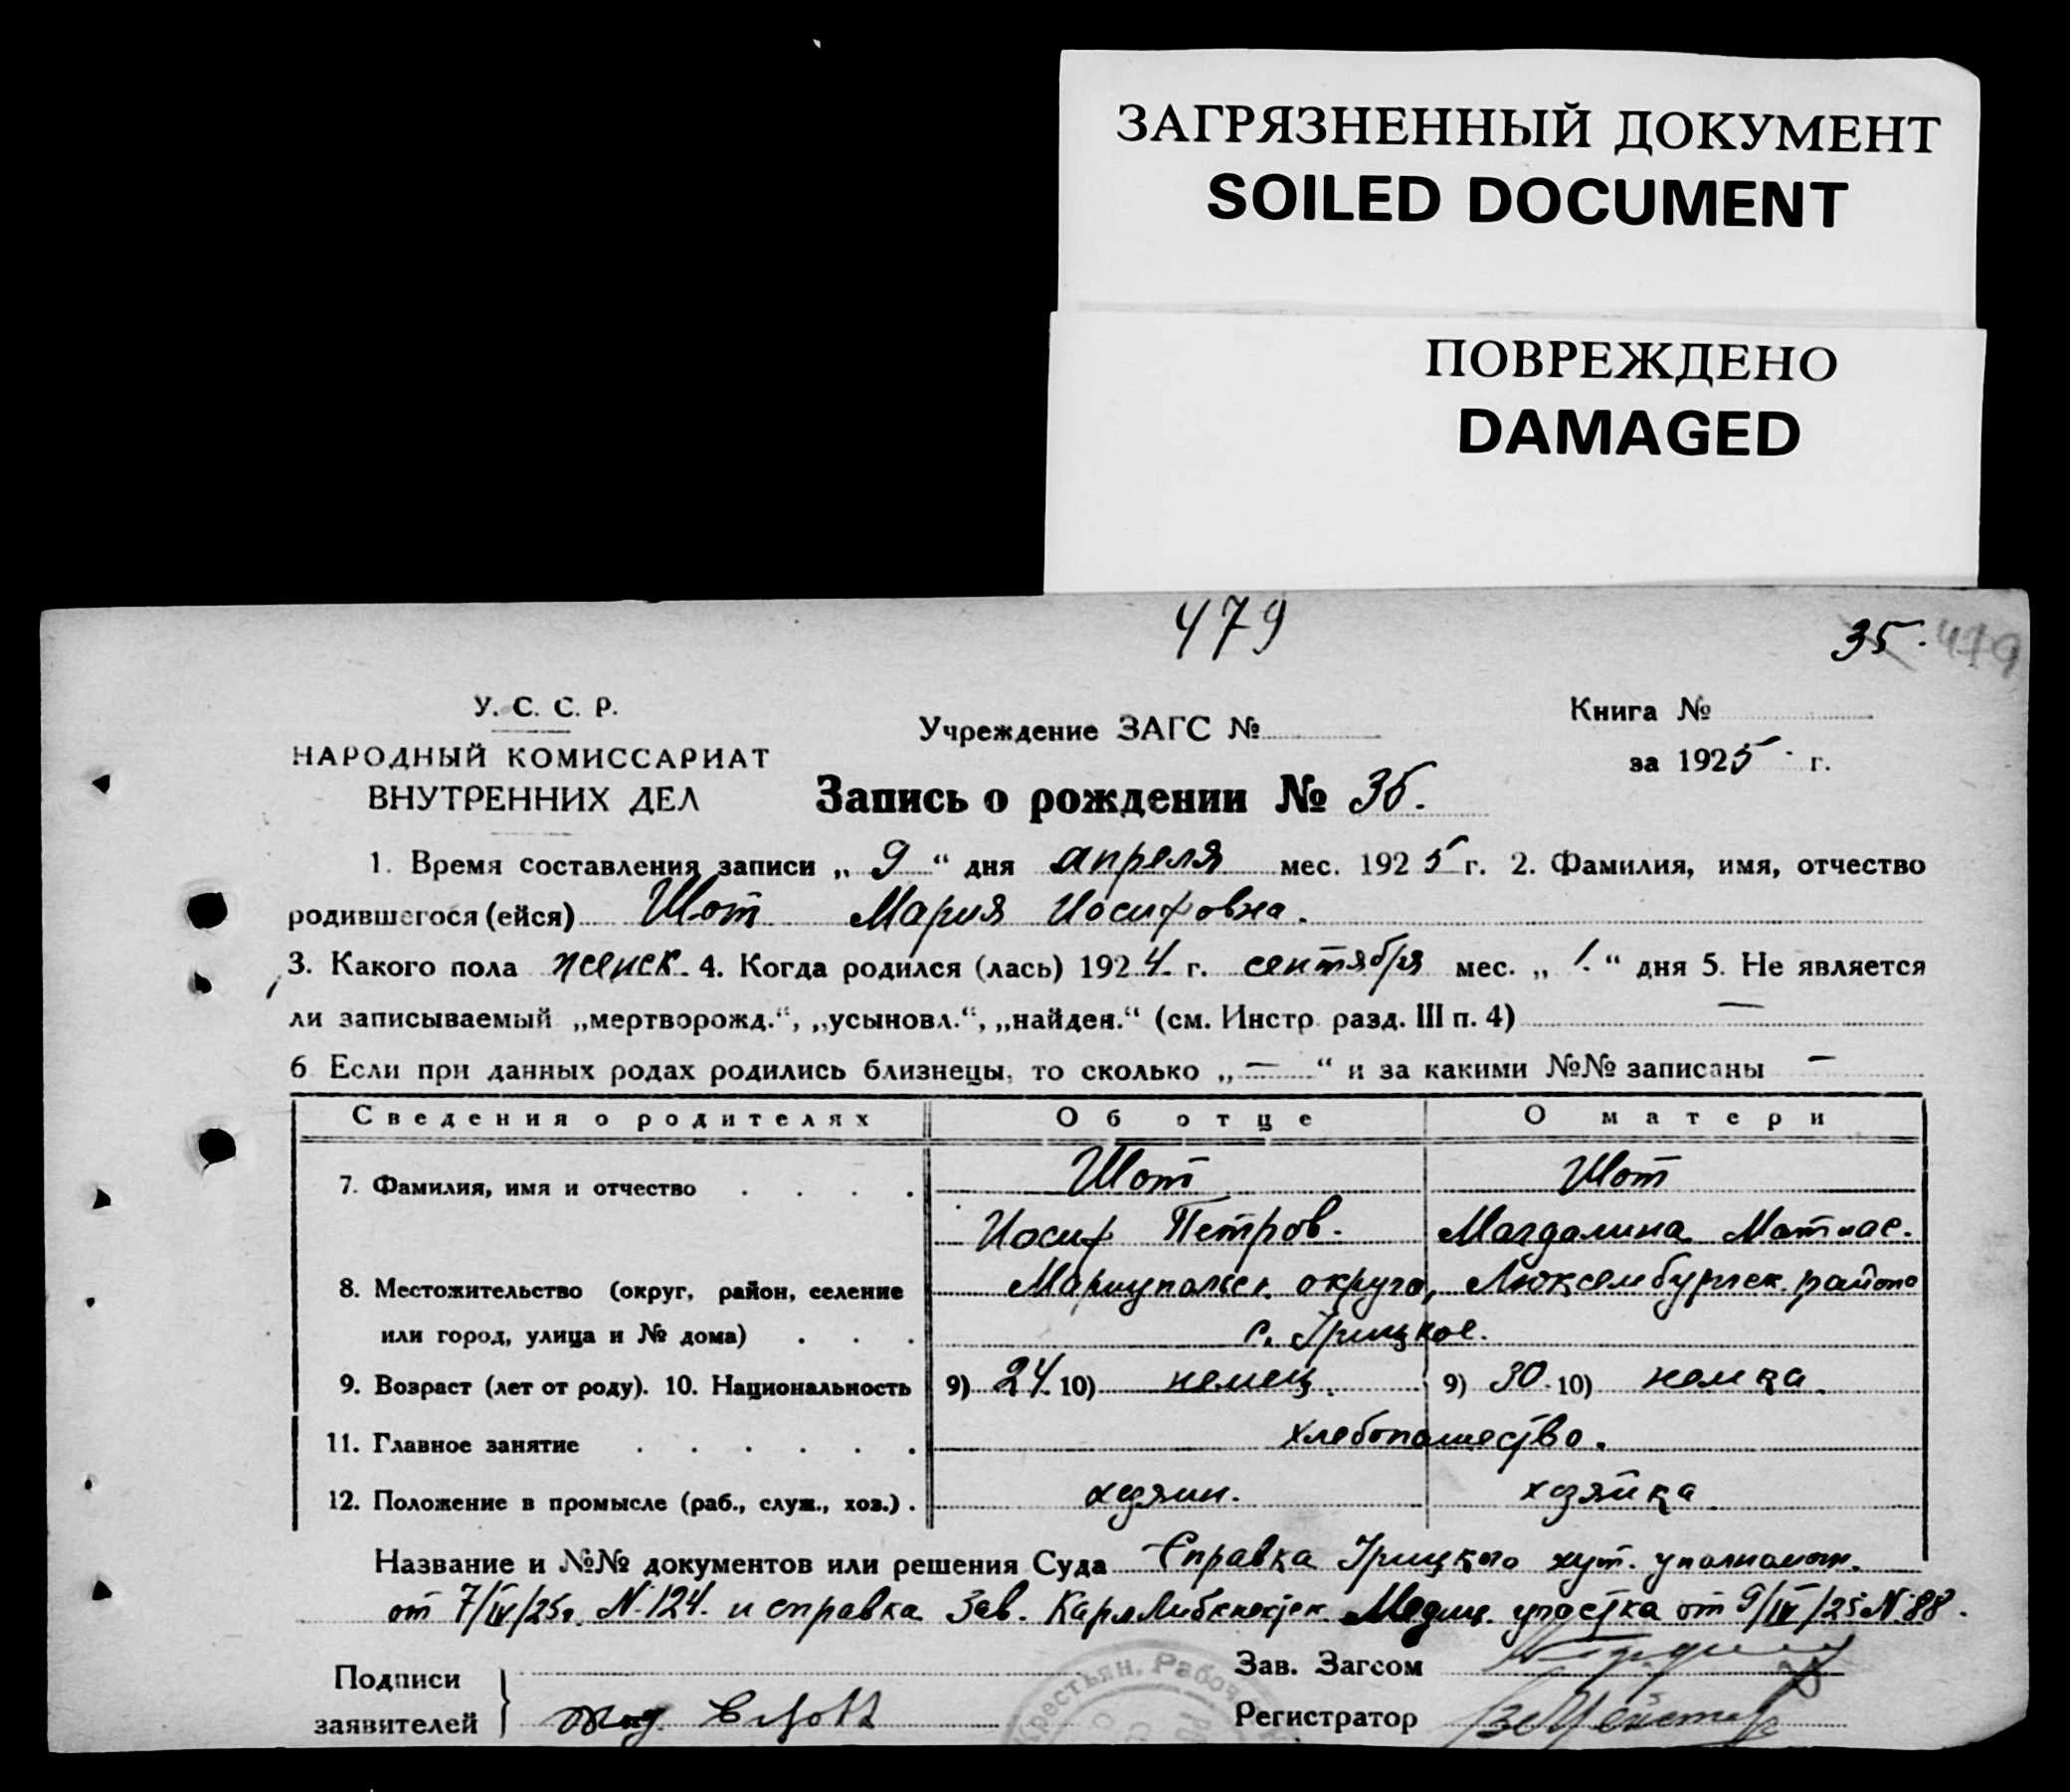 ЗАГРЯЗНЕННЫЙ ДОКУМЕНТ
SOILED DOCUMENT
ПОВРЕЖДЕНО
DAMAGED
479
35. 479
У. С. С. Р.
НАРОДНЫЙ КОМИССАРИАТ
ВНУТРЕННИХ ДЕЛ
Учреждение ЗАГС №
Книга №
за 1925 г.
Запись о рождении № 35.
1. Время составления записи „ 9 “ дня апреля мес. 1925 г. 2. Фамилия, имя, отчество
родившегося (ейся) Шот Мария Иосифовна.
3. Какого пола женск. 4. Когда родился (лась) 1924 г. сентября мес. „ 1. “ дня 5. Не является
ли записываемый „мертворожд.“, „усыновл.“, „найден.“ (см. Инстр. разд. III п. 4) —
6 Если при данных родах родились близнецы, то сколько „ — “ и за какими №№ записаны —
Сведения о родителях Об отце О матери
7. Фамилия, имя и отчество . . . . Шот Шот
Иосиф Петров. Магдалина Матиас.
8. Местожительство (округ, район, селение Мариупольск. округа, Люксембургск. района
или город, улица и № дома) . . . с. Грицкое.
9. Возраст (лет от роду). 10. Национальность 9) 24. 10) немец. 9) 30. 10) немка.
11. Главное занятие . . . . . . хлебопашество.
12. Положение в промысле (раб., служ., хоз.) . хозяин. хозяйка
Название и №№ документов или решения Суда Справка Грицкого хут. уполномоч.
от 7/IV/25г. N. 124. и справка Зав. КарлЛибкнехтск. Медиц. участка от 9/IV/25 N. 88.
Подписи
заявителей
Зав. Загсом
Регистратор
Крестьян. Рабоч.